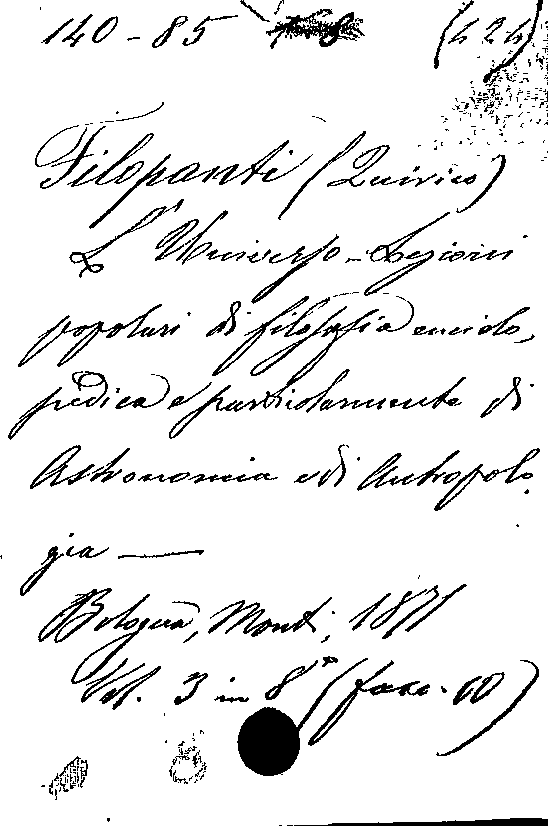 140-85 (424)
Filopanti (Quirico)
L'Universo - Lezioni
popolari di filosofia enciclo,
pedica e particolarmente di
Astronomia e di Antropolo
gia —
Bologna, Monti, 1871
Vol. 3 in 8° (fasc. 10)